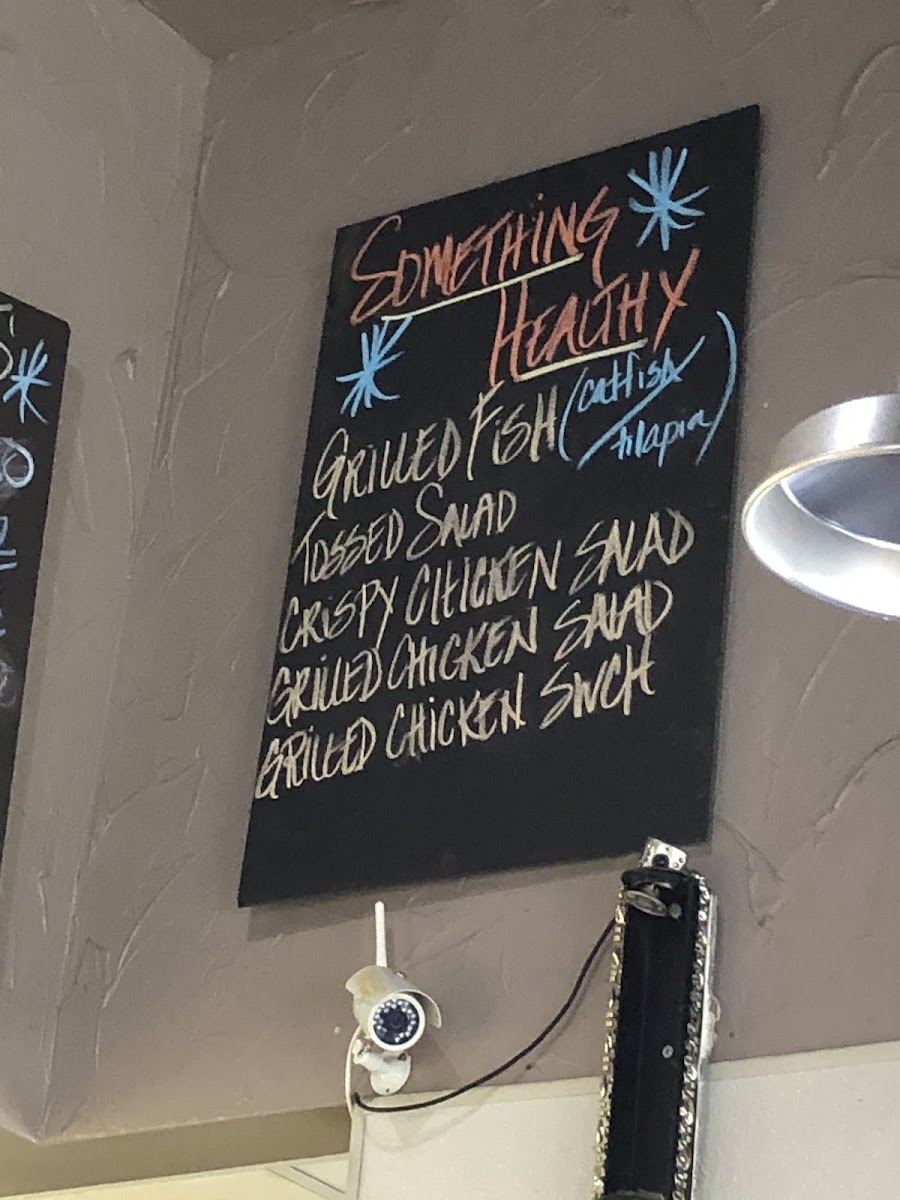 SOMETHING
HEALTHY
GRILLED FISH (catfish/
tilapia)
TOSSED SALAD
CRISPY CHICKEN SALAD
GRILLED CHICKEN SALAD
GRILLED CHICKEN SWCH